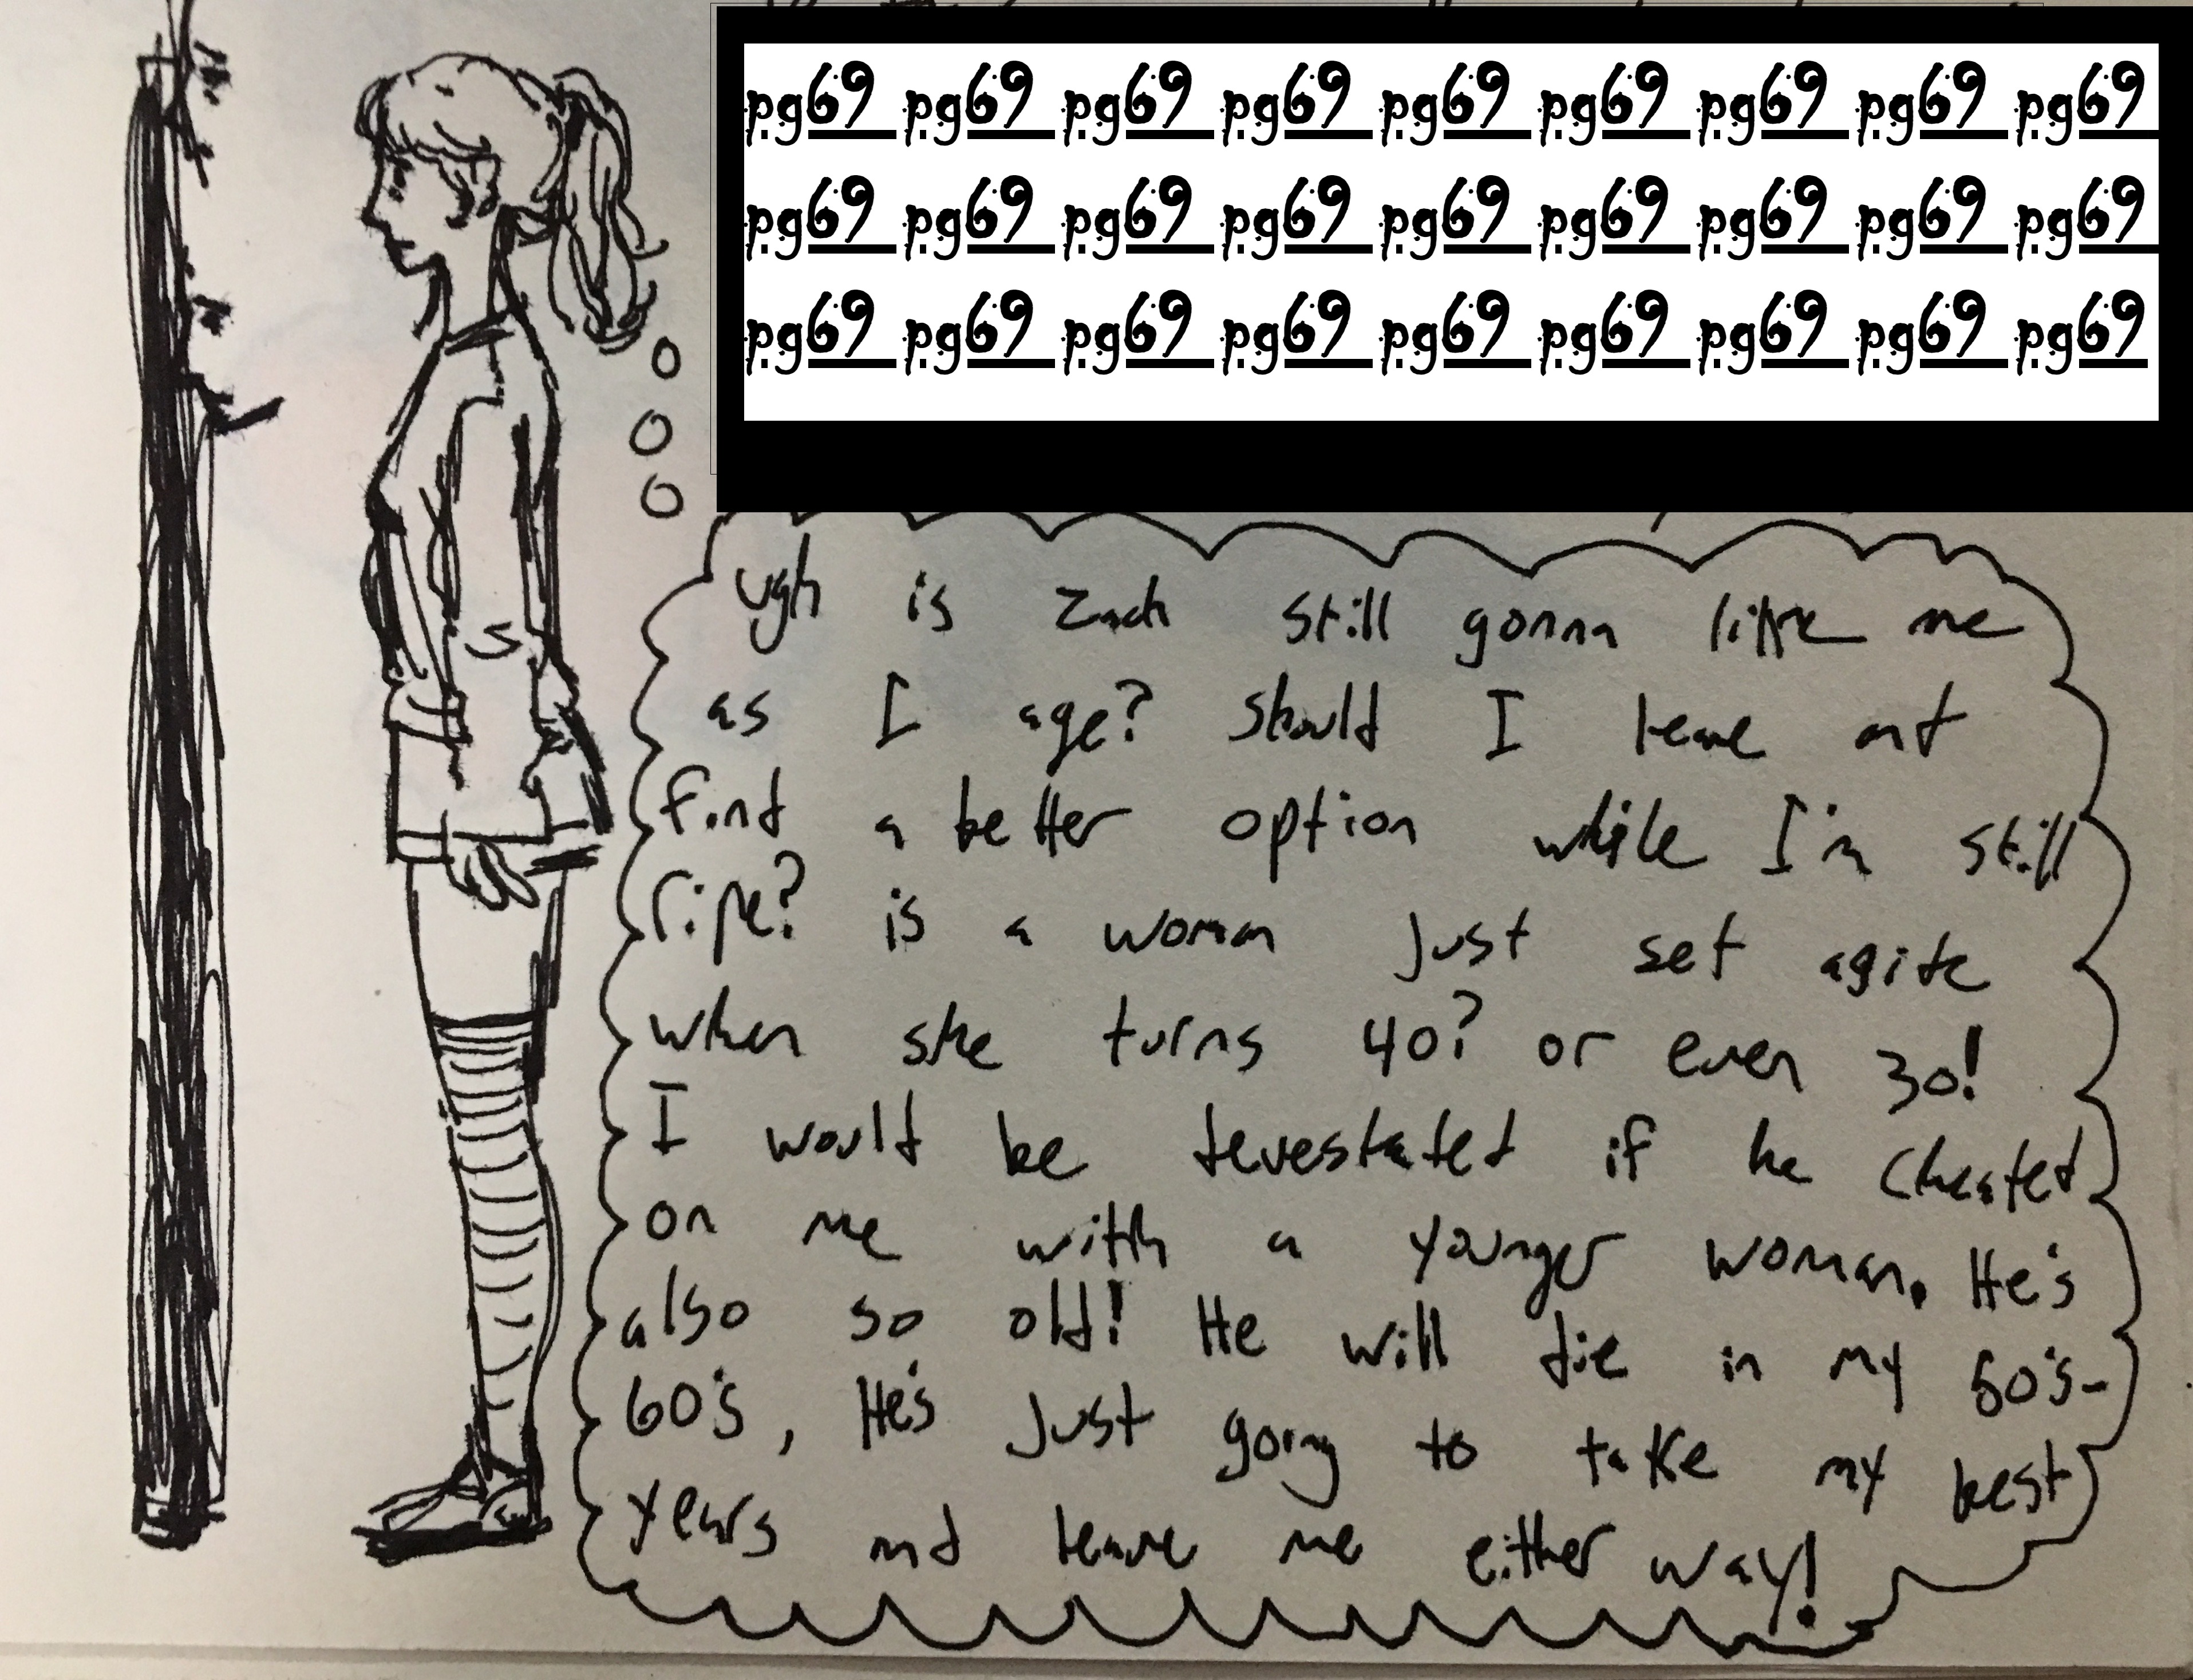 pg69 pg69 pg69 pg69 pg69 pg69 pg69 pg69 pg69
pg69 pg69 pg69 pg69 pg69 pg69 pg69 pg69 pg69
pg69 pg69 pg69 pg69 pg69 pg69 pg69 pg69 pg69
ugh is Zach still gonna like me
as I age? Should I leave and
find a better option while I'm still
ripe? is a woman just set aside
when she turns 40? or even 30!
I would be devestated if he cheated
on me with a younger woman. He's
also so old! He will die in my 50's-
60's, He's just going to take my best
years and leave me either way!